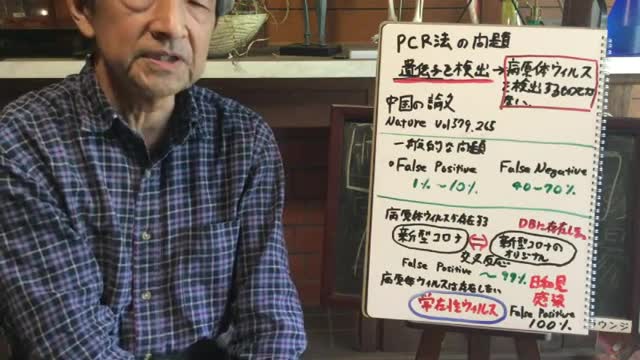 PCR法の問題
遺伝子を検出→病原体ウィルス
を検出するものでは
ない
中国の論文
Nature vol579.265
一般的な問題
•False Positive False Negative
1%〜10% 40-70%
病原体ウィルスが存在する
DBに存在しない
新型コロナ ⇔ 新型コロナの
オリジナル
交叉反応
False Positive 〜99%
日和見
感染
病原体ウィルスは存在しない
常在性ウィルス
False Positive
100%
ラウンジ